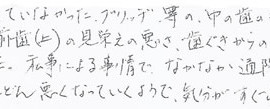 ていなかった。ブリッヂ等の、中の歯の
前歯(上)の見栄えの悪さ、歯ぐきからの
た。私事による事情で、なかなか通院
どん悪くなっていくようで、気分がすぐ